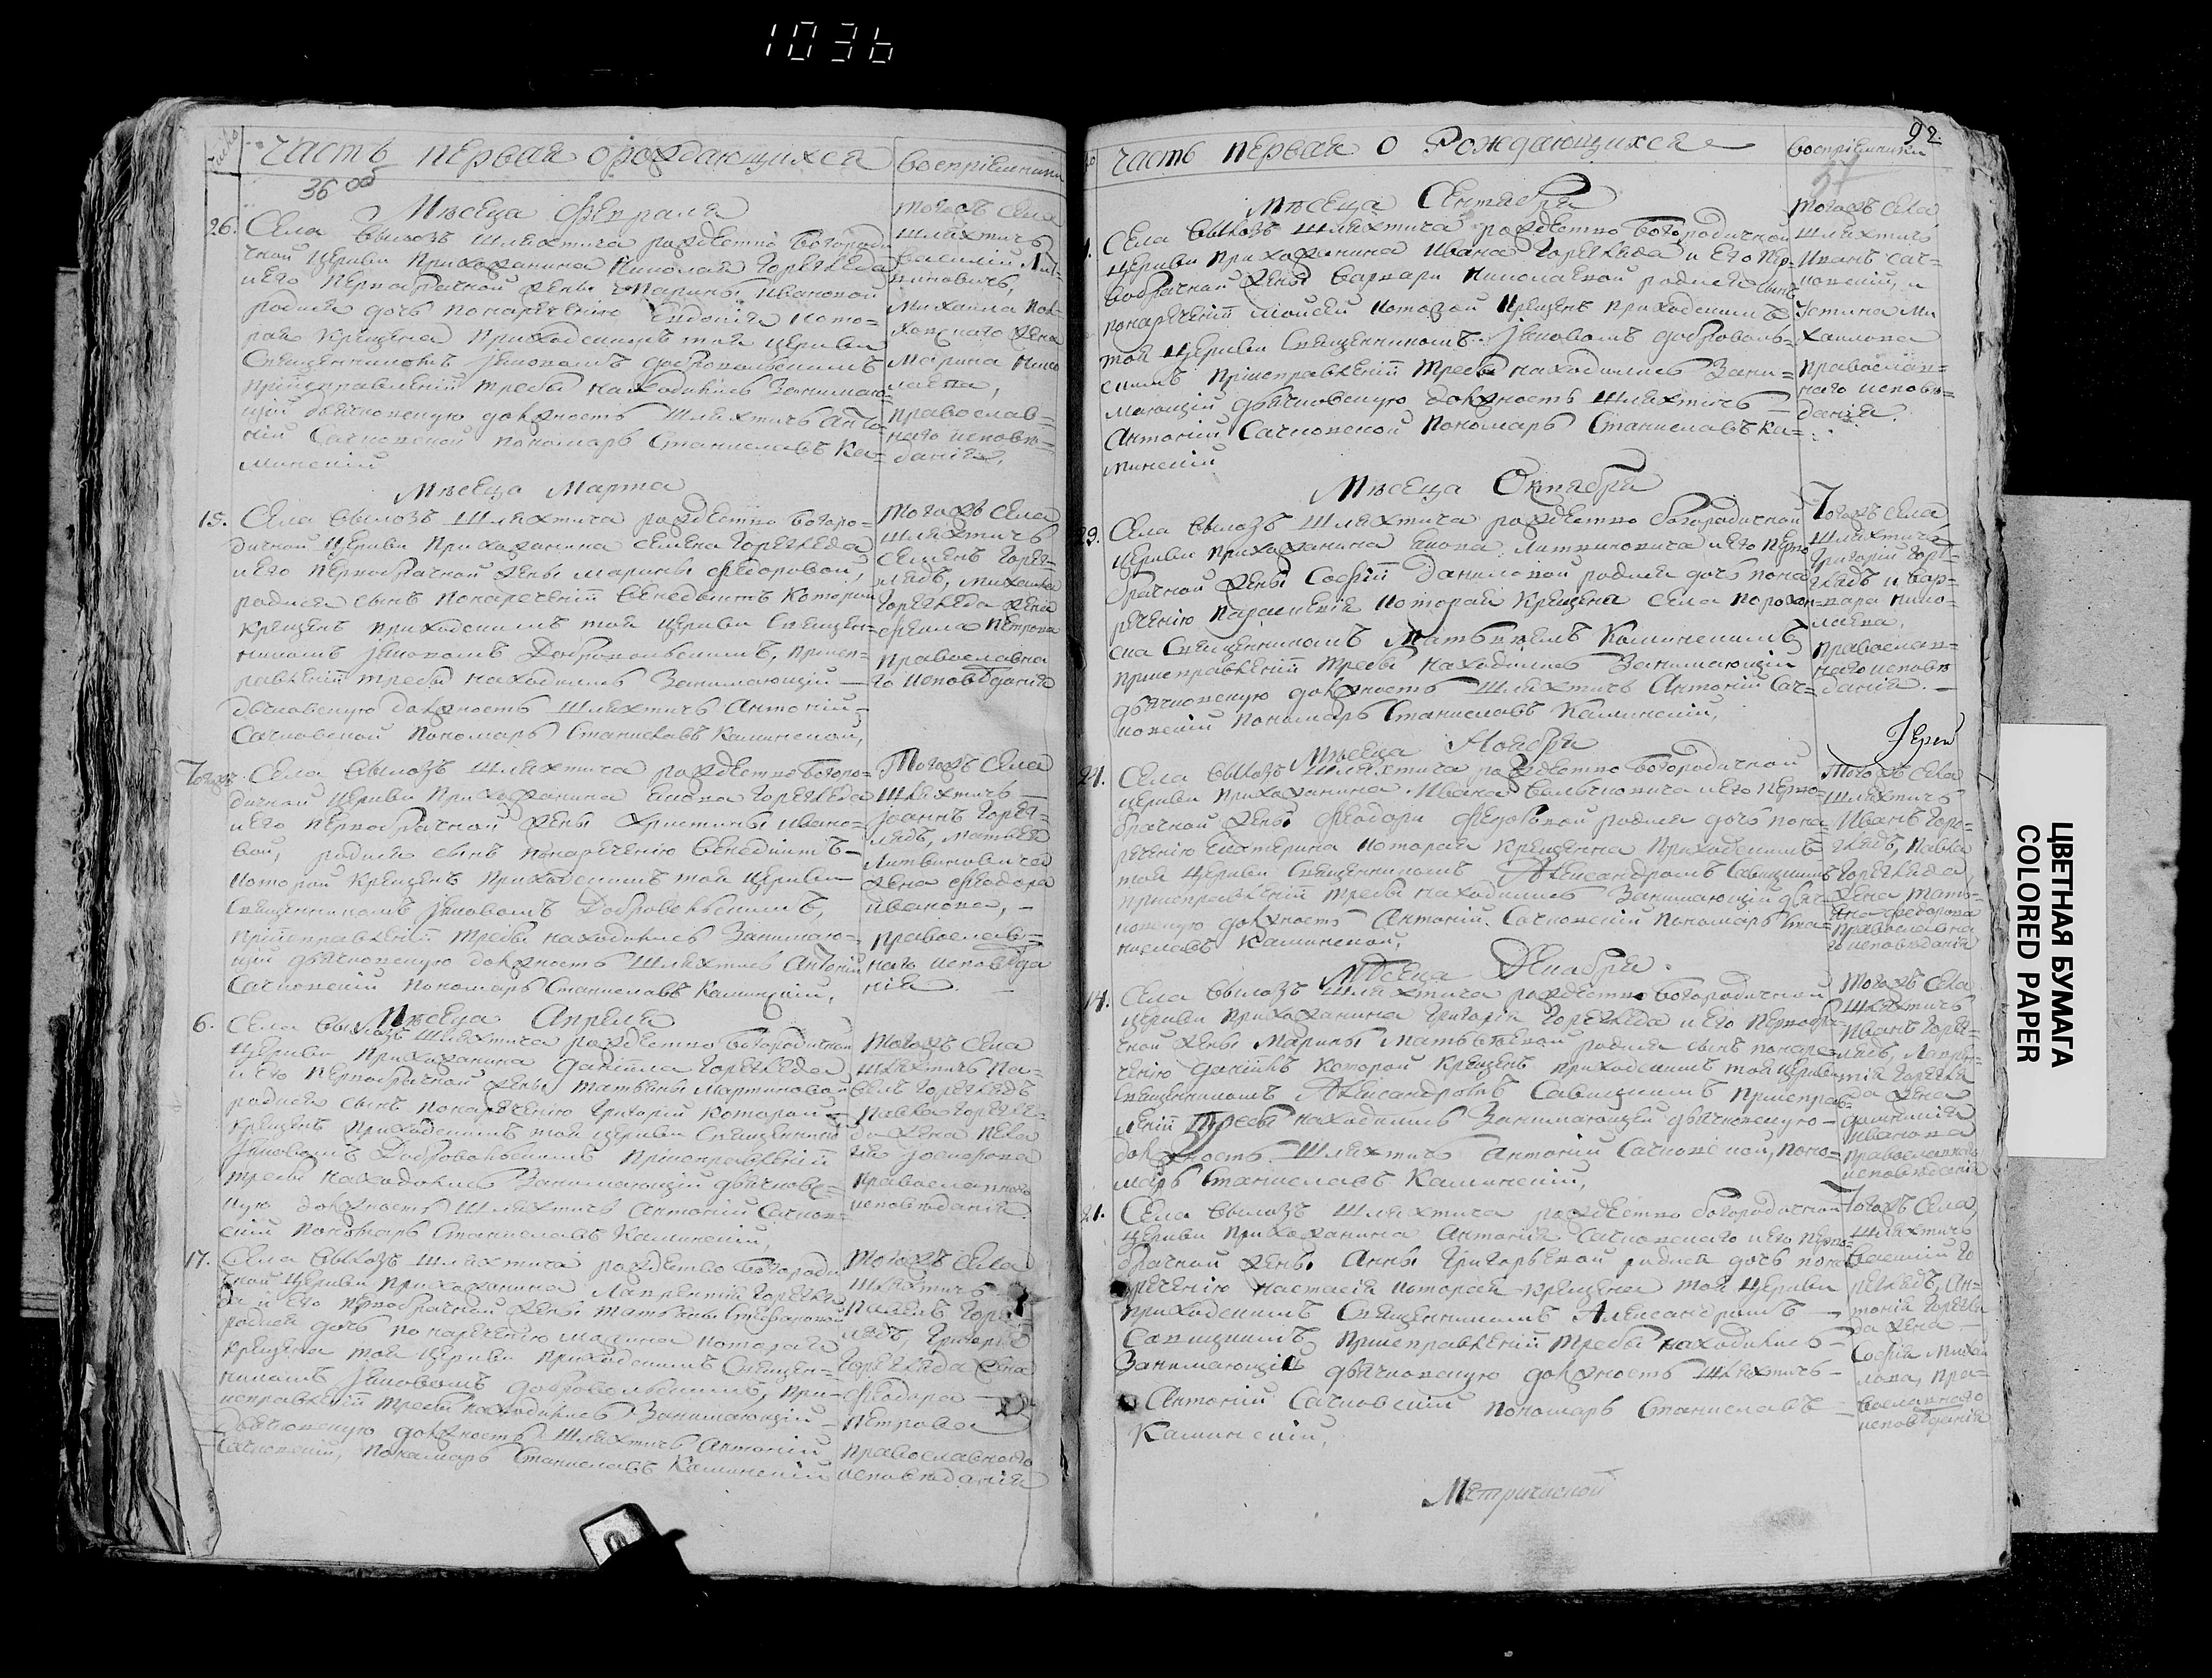 1036
Часть первая о рождающихся
воспріемники
36 об
Мѣсеца Февраля
26. Села Вылозъ шляхтича рождество Богороди
чной церкви прихожанина Николая Горегляда
и его первобрачной жены Марины Ивановой
родися дочь понареченію Евдокія кото=
рая крещена приходскимъ той церкви
Священникомъ Іяковомъ Добровольскимъ
при исправленій требы находились Занимаю=
щій дьячковскую должность шляхтичъ Анто=
ній Сачковской пономарь Станиславъ Ка=
минскій
тогожъ села
шляхтичъ
Василій Лит=
виновичъ,
Михаила
жена
Марина Нико
лаева,
православ=
наго исповѣ=
данія,
Мѣсеца Марта
15. Села Вылозъ шляхтича рождество Богоро=
дичной церкви прихожанина Семена Горегляда
и его первобрачной жены Марины Федоровой,
родися сынъ понареченій Венедыктъ которой
крещенъ приходскимъ той церкви Священ=
никомъ Іяковомъ Добровольскимъ, приисп=
равленій требы находились Занимающій —
дьячковскую должность шляхтичъ Антоній=
Сачковской пономарь Станиславъ Каминской,
тогожъ села
шляхтичъ
Семенъ Горег=
лядъ, Михаила
Горегляда жена
Фекла Петрова
православна
го исповѣданія
Тогожъ. Села Вылозъ шляхтича рождество Богоро=
дичной церкви прихожанина Якова Горегляда
и его первобрачной жены Христины Ивано=
вой, родися сынъ понареченію Венедиктъ—
которой крещенъ приходскимъ той церкви
Священникомъ Іяковомъ Добровольскимъ,
приисправленій требы находились Занимаю=
щій дьячковскую должность шляхтичъ Антоній
Сачковскій пономарь Станиславъ Каминскій,
Тогожъ села
шляхтичъ—
Іоаннъ Горег=
лядъ, Матвея
Литвиновича
жена Феодора
Иванова, —
православ=
наго исповѣда
нія. —
Мѣсеца Апреля
6. Села Вылозъ шляхтича рождество Богородичной
церкви прихожанина Даніила Горегляда
и его первобрачной жены Татьяны Мартиновой
родися сынъ понареченію Григорій которой=
крещенъ приходскимъ той церкви Священникомъ
Іяковомъ Добровольскимъ приисправленій
требы находились Занимающій дьячковс=
кую должность шляхтичъ Антоній Сачков=
скій пономарь Станиславъ Каминскій,
Тогожъ села
шляхтичъ Па=
велъ Гореглядъ
Павла Горегля=
да жена Пела
гія
православнаго
исповѣданія
17. Села Вылозъ шляхтича рождество Богороди
чной церкви прихожанина Лаврентія Горегля
да и его первобрачной жены Татьяны Стефановой
родися дочь по нареченію Марина которая
крещена той церкви приходскимъ Священ=
никомъ Іяковомъ Добровольскимъ, при=
исправленій требы находились Занимающій —
дьячковскую должность шляхтичъ Антоній
Сачковскій, пономарь Станиславъ Каминскій
Тогожъ села
шляхтичъ
Павелъ Горег
лядъ, Григорія
Горегляда жена
Феодора —
Петрова
православнаго
исповѣданія
92.
Часть первая о Рождающихся
воспріемники
Мѣсеца Сентября
Села Вылозъ шляхтича рождество Богородичной
церкви прихожанина Ивана Горегляда и его пер=
вобрачной жены Варвари Николаевой родися сынъ
понареченій Мойсей которой крещенъ приходскимъ
той церкви Священникомъ Іяковомъ Доброволь=
скимъ приисправленій требы находились Зани=
мающій дьячковскую должность шляхтичъ —
Антоній Сачковской пономарь Станиславъ Ка=
минскій
тогожъ села
шляхтичъ
Иванъ Сач=
ковскій, и
Устина Ми
хаилова
православ=
наго исповѣ=
данія.
Мѣсеца Октября
29. Села Вылозъ шляхтича рождество богородичной
церкви прихожанина Якова Литвиновича и его перво
брачной жены Софій Даниловой родися дочь пона
реченію Параскевія которая крещена села Порохон=
ска Священникомъ Матвѣемъ Каминскимъ
приисправленій требы находились Занимающій
дьячковскую должность шляхтичъ Антоній Сач=
ковскій пономарь Станиславъ Каминскій,
Тогожъ села
шляхтичъ
Григорій Горе=
глядъ и Вар=
вара Нико=
лаева,
православ=
наго исповѣ
данія. —
Іерей
Мѣсеца Ноября
21. Села Вылозъ шляхтича рождество Богородичной
церкви прихожанина Ивана Вельчковича и его перво=
брачной жены Феодори Федоровой родися дочь пона=
реченію Екатерина которая крещенна приходскимъ
той церкви Священникомъ Александромъ Савицкимъ
приисправленій требы находились Занимающій дьяч=
ковскую должность Антоній Сачковскій пономарь Ста=
ниславъ Каминской,
Тогожъ села
шляхтичъ
Иванъ Горе=
глядъ, Павла
Горегляда
жена Тать=
яна Федорова
православна
го исповѣданія
Мѣсеца Декабря.
14. Села Вылозъ шляхтича рождество богородичной
церкви прихожанина Григорія Горегляда и его первобра=
чной жены Марины Матвѣевой родися сынъ понаре=
ченію Даніилъ которой крещенъ приходскимъ той церкви
Священникомъ Александромъ Савицкимъ приисправ=
леній требы находились Занимающій дьячковскую—
должность шляхтичъ Антоній Сачковской, поно=
марь Станиславъ Каминскій,
тогожъ села
шляхтичъ
Иванъ Горег=
лядъ, Лаврен=
тія Горегля
да жена
Иванова
православнаго
исповѣданія
21. Села Вылозъ шляхтича рождество богородичной
церкви прихожанина Антонія Сачковскаго и его перво=
брачной жены Анны Григорьевой родися дочь пона
реченію Настасія которая крещена той церкви
приходскимъ Священникомъ Александромъ —
Савицкимъ приисправленій требы находились—
Занимающій дьячковскую должность шляхтичъ —
Антоній Сачковскій пономарь Станиславъ —
Каминскій,
Тогожъ села,
шляхтичъ
Василій Го
реглядъ, Ан=
тонія Горегля
да жена —
Софія Михаи
лова, пра=
вославнаго
исповѣданія
Метрической
ЦВЕТНАЯ БУМАГА
COLORED PAPER